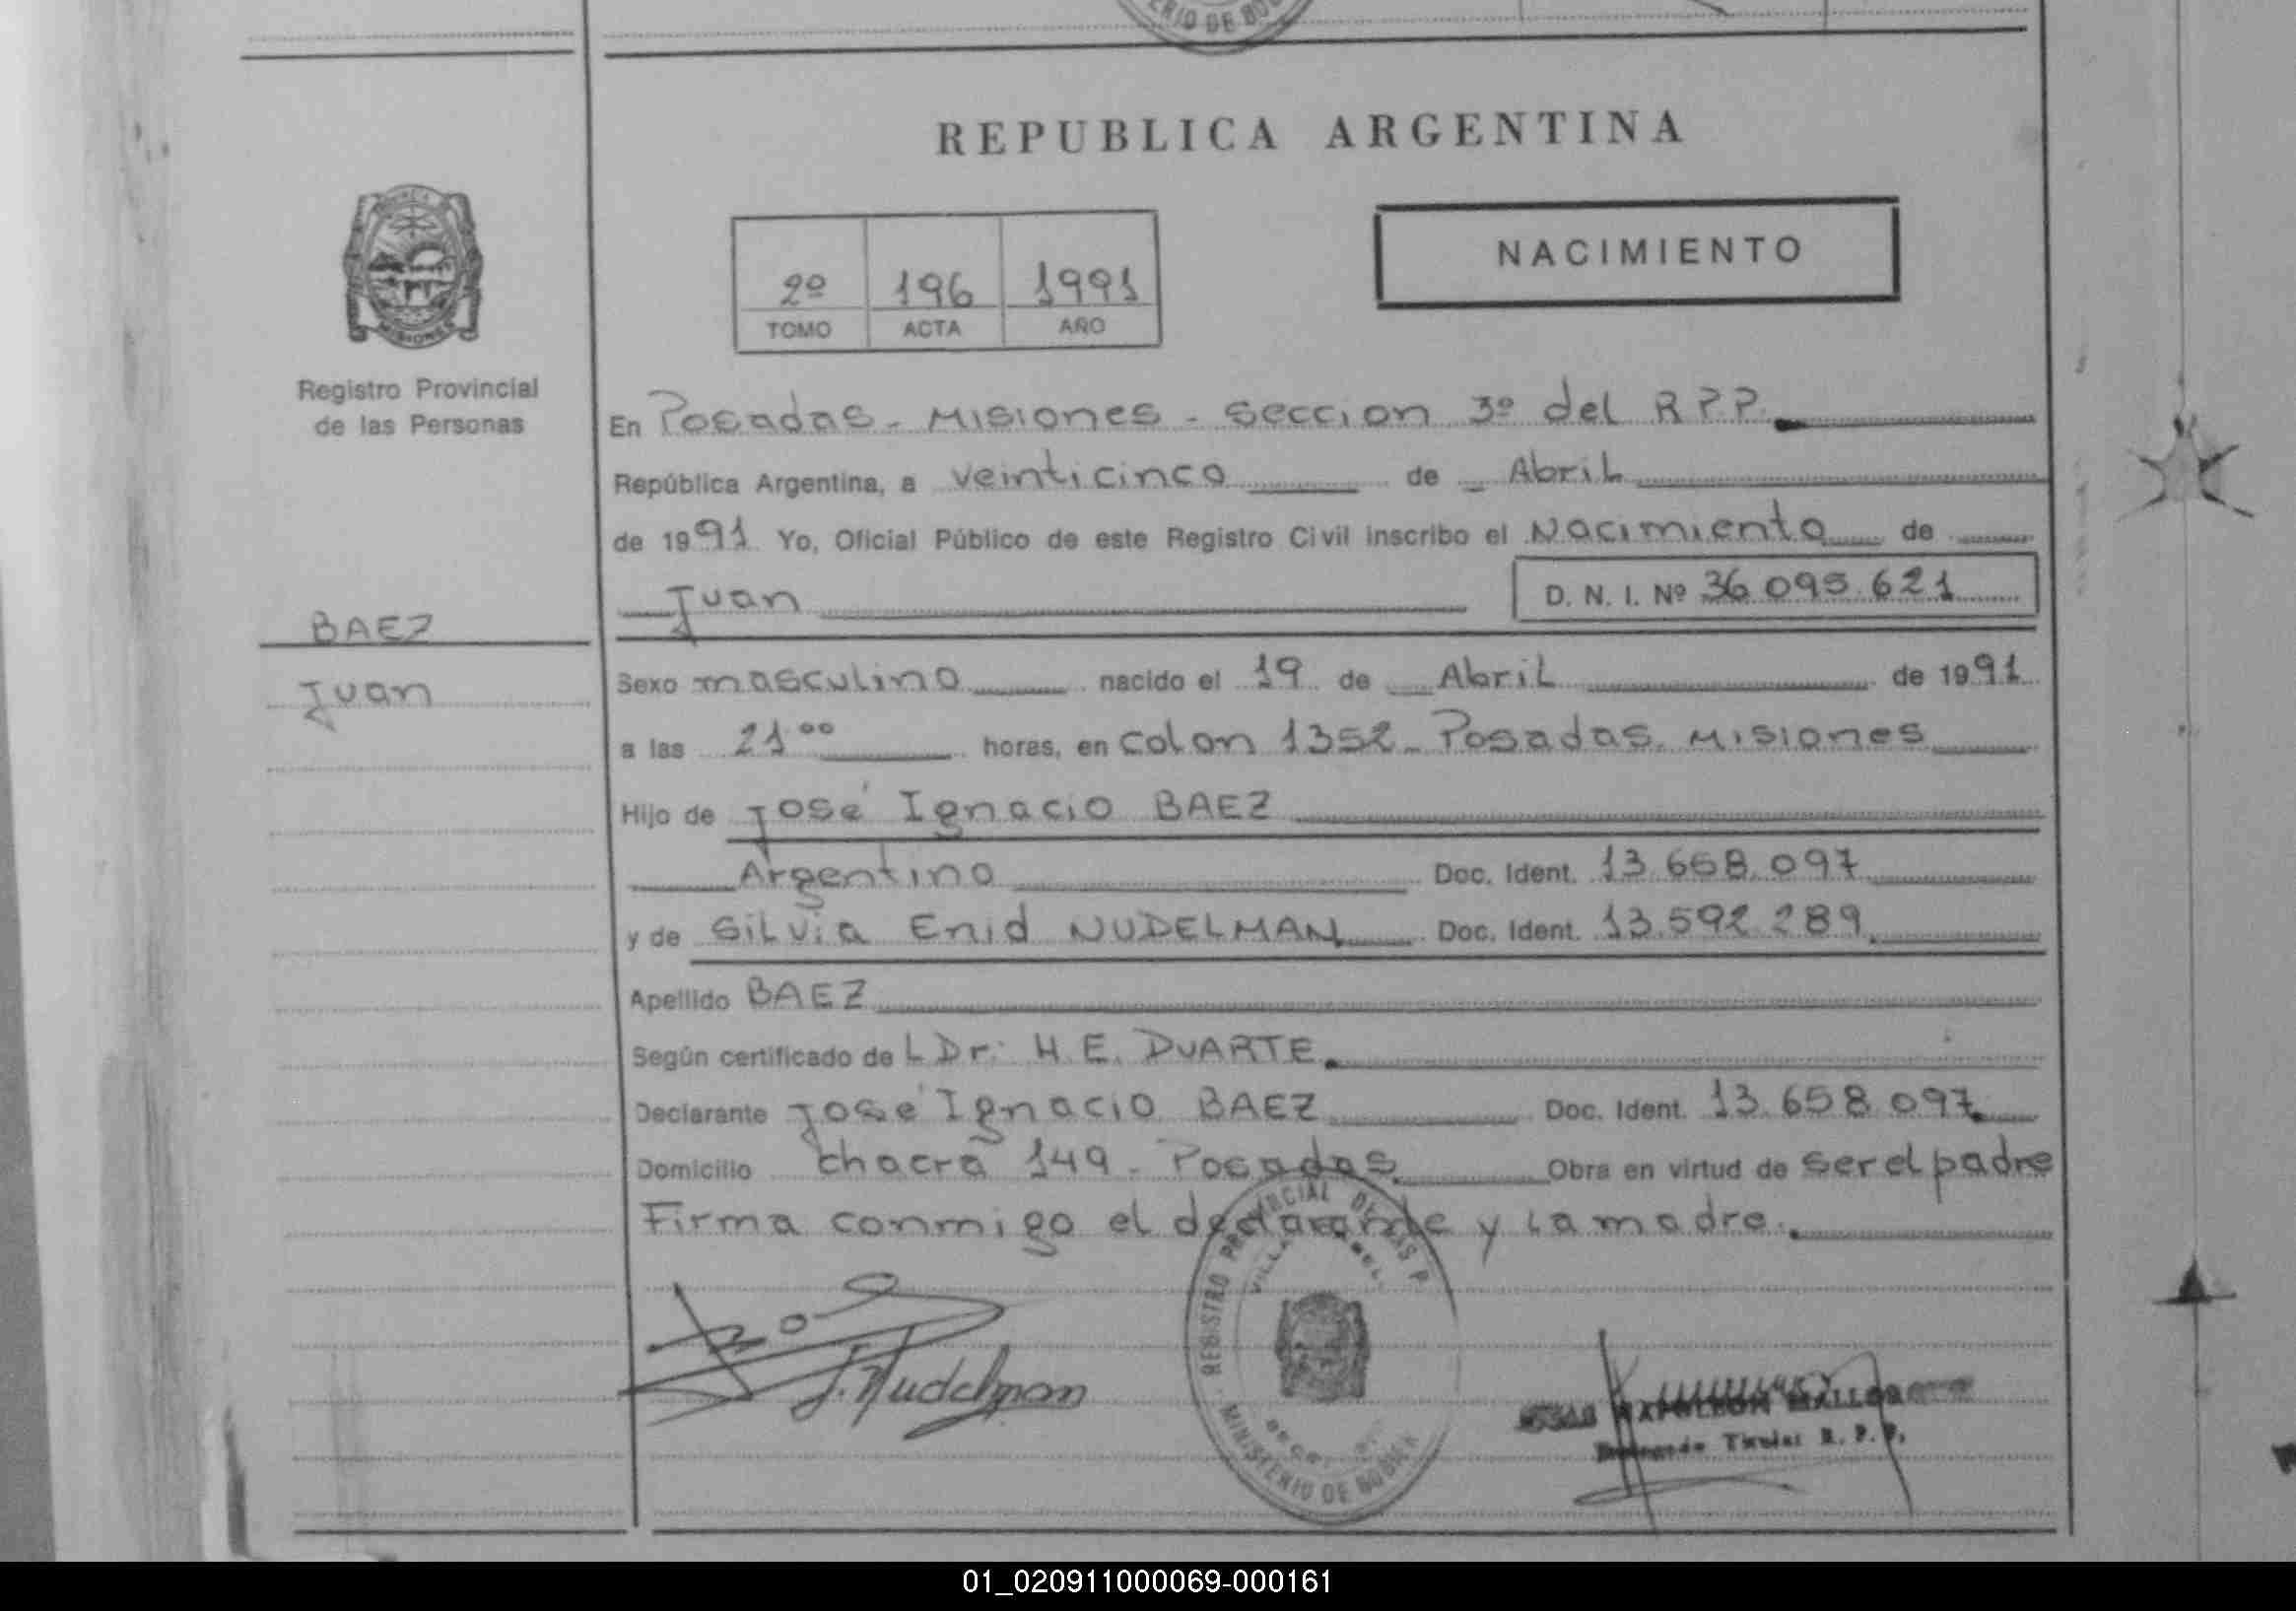 REPUBLICA ARGENTINA
NACIMIENTO
2º 196 1991
TOMO ACTA AÑO
MISIONES
Registro Provincial
de las Personas
BAEZ
Juan
En Posadas - Misiones - seccion 3º del R P P.
República Argentina, a veinticinco de Abril
de 1991 Yo, Oficial Público de este Registro Civil inscribo el Nacimiento de
Juan D. N. I. Nº 36.095.621
Sexo masculino nacido el 19 de Abril de 1991
a las 21 ºº horas, en colon 1352 - Posadas. Misiones
Hijo de José Ignacio BAEZ
Argentino Doc. Ident. 13.658.097
y de Silvia Enid NUDELMAN Doc. Ident. 13.592.289
Apellido BAEZ
Según certificado de L Dr. H. E. DUARTE.
Declarante José Ignacio BAEZ Doc. Ident. 13.658.097
Domicilio chacra 149 - Posadas. Obra en virtud de ser el padre
Firma conmigo el declarante y la madre.
REGISTRO PROVINCIAL DE LAS P.
VILLA
MINISTERIO DE GOBIER
S. Nudelman
NAPOLEON
Titular R. P. P.
01_020911000069-000161